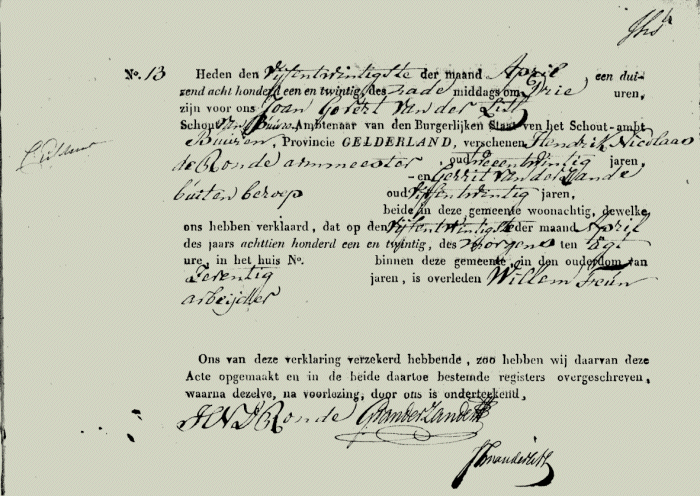 No. 13 Heden den Vijfentwintigste der maand April een dui-
zend acht honderd een en twintig, des nade middags om Drie uren,
zijn voor ons Joan Gevert van der Lith
Schout van Buiren Ambtenaar van den Burgerlijken Staat ven het Schout-ambt
Buuren, Provincie GELDERLAND, verschenen Hendrik Nicolaas
de Ronde armmeester oud tweeentwintig jaren,
- en Gerrit van der Zande
buiten beroep oud Vijfentwintig jaren,
beide in deze gemeente woonachtig, dewelke
ons hebben verklaard, dat op den Vijfentwintigste der maand April
des jaars achttien honderd een en twintig, des Morgens ten agt
ure, in het huis No. binnen deze gemeente, in den ouderdom van
Zeventig jaren, is overleden Willem
arbeijder
Ons van deze verklaring verzekerd hebbende, zoo hebben wij daarvan deze
Acte opgemaakt en in de beide daartoe bestemde registers overgeschreven,
waarna dezelve, na voorlezing, door ons is onderteekend,
HND Ronde GvanderZande
JGvanderLith